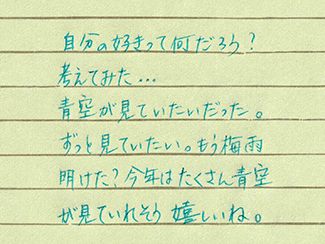 自分の好きって何だろう？
考えてみた…
青空が見ていたいだった。
ずっと見ていたい。もう梅雨
明けた？今年はたくさん青空
が見ていれそう 嬉しいね。